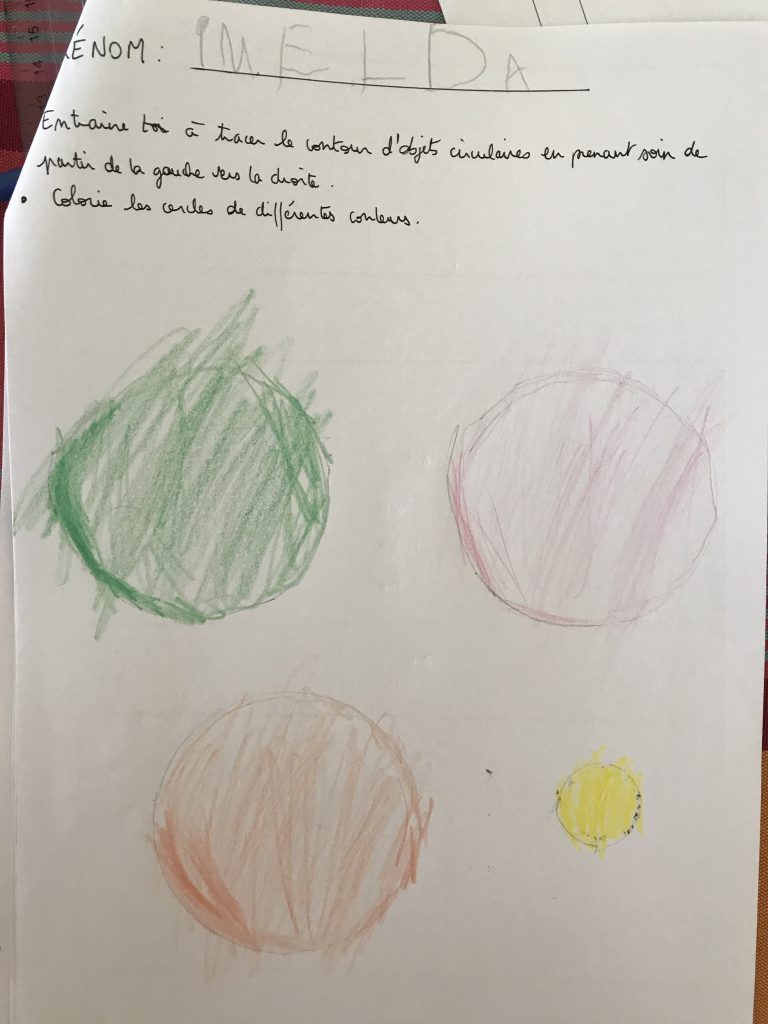 ÉNOM : IMELDA
Entraine toi à tracer le contour d'objets circulaires en prenant soin de
partir de la gauche vers la droite.
• Colorie les cercles de différentes couleurs.
15
14
13